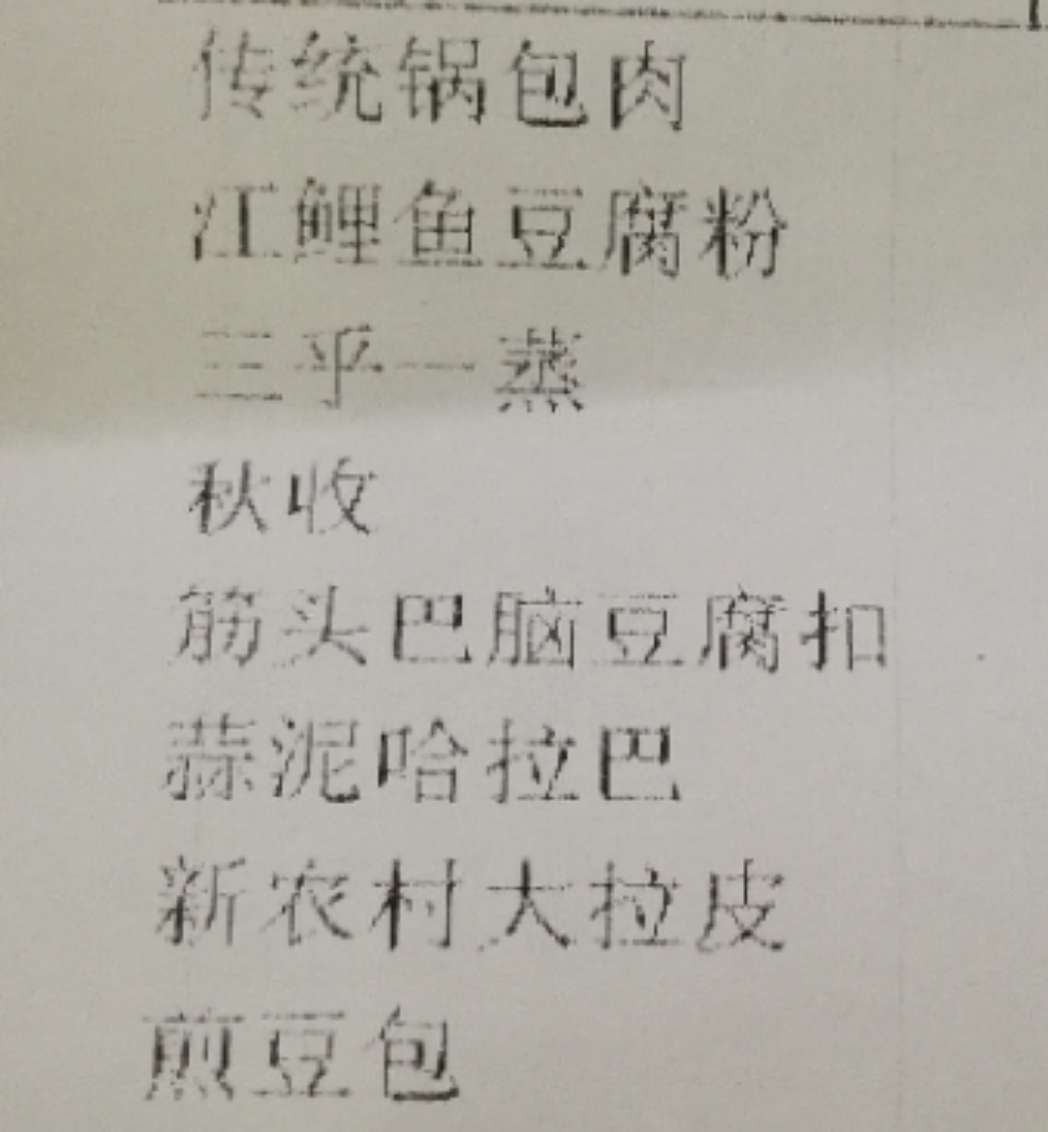 传统锅包肉
江鲤鱼豆腐粉
三乎一蒸
秋收
筋头巴脑豆腐扣
蒜泥哈拉巴
新农村大拉皮
煎豆包